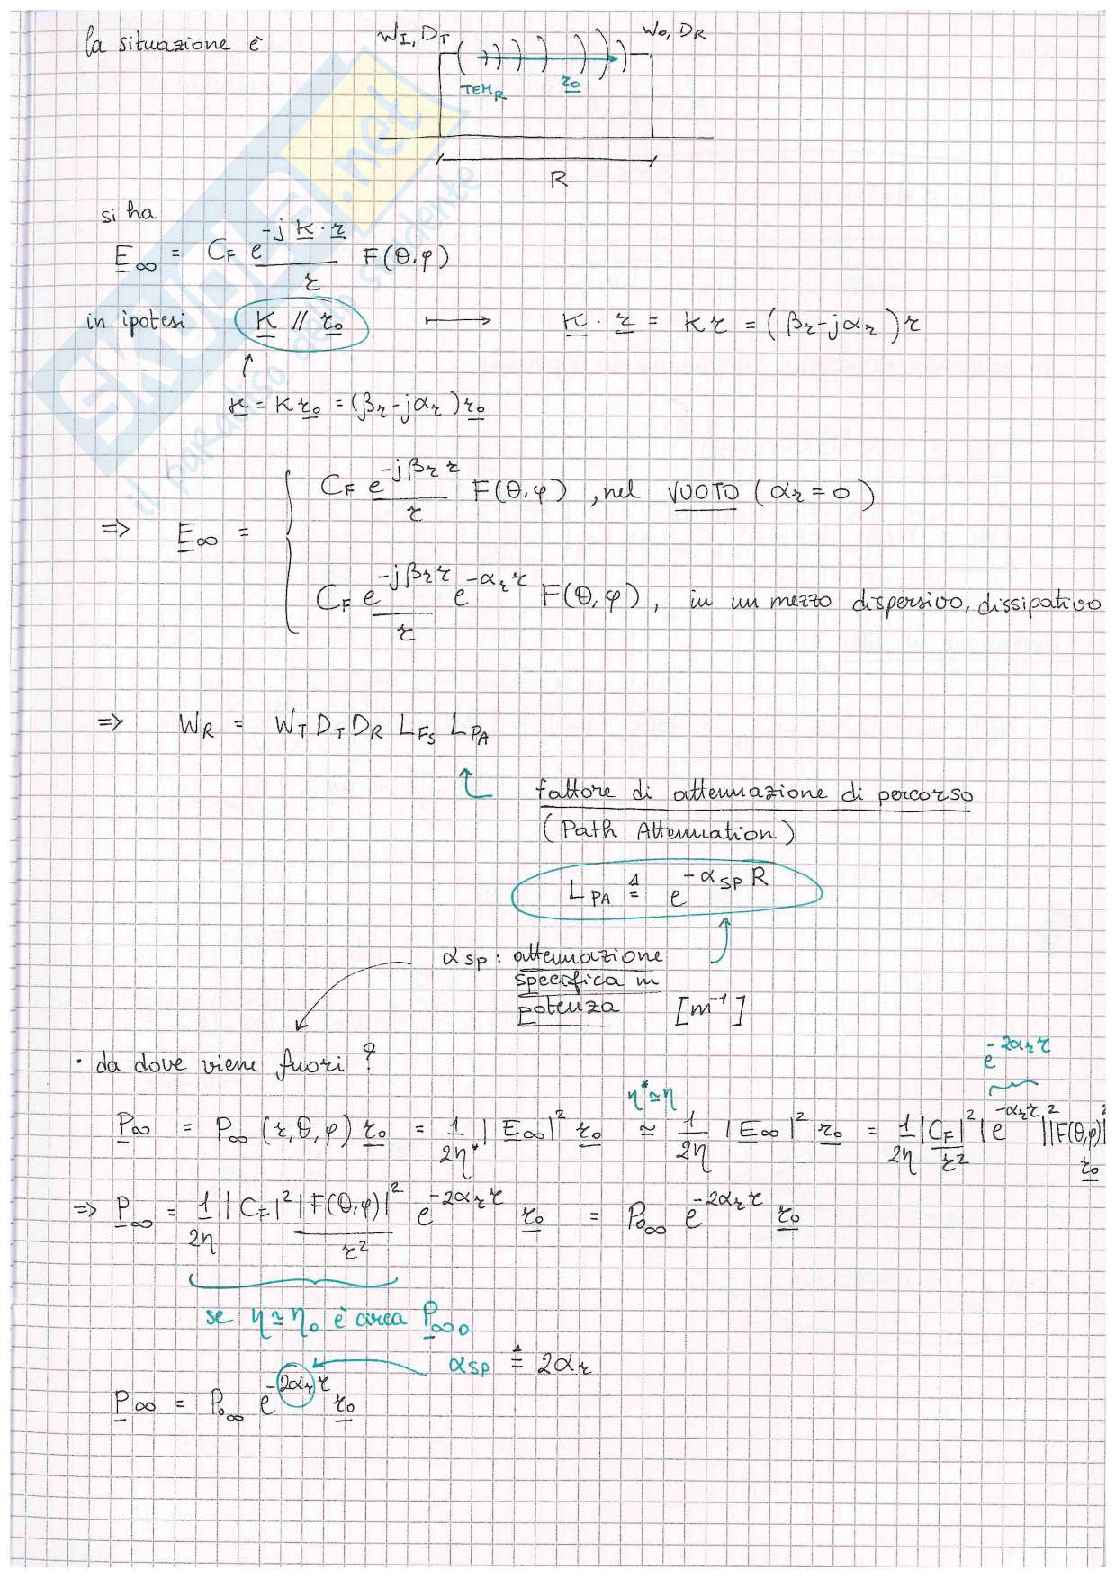 la situazione è
W_I, D_T
W_0, D_R
TEM_R
r_0
R
si ha
E_∞ = C_F e^{-j k · r} / r F(θ,φ)
in ipotesi K // r_0 ⟼ K · r = K r = (β_r - jα_r) r
k = K r_0 = (β_r - jα_r) r_0
C_F e^{-jβ_r r} / r F(θ,φ), nel VUOTO (α_r = 0)
⇒ E_∞ =
C_F e^{-jβ_r r} / r e^{-α_r r} F(θ,φ), in un mezzo dispersivo, dissipativo
⇒ W_R = W_T D_T D_R L_FS L_PA
fattore di attenuazione di percorso
(Path Attenuation)
L_PA ≜ e^{-α_sp R}
α_sp : attenuazione
specifica in
potenza [m^{-1}]
· da dove viene fuori?
e^{-2α_r r}
η* ≃ η
P_∞ = P_∞ (r,θ,φ) r_0 = 1/2η* |E_∞|^2 r_0 ≃ 1/2η |E_∞|^2 r_0 = 1/2η |C_F|^2/r^2 |e^{-α_r r}|^2 |F(θ,φ)|^2 r_0
⇒ P_∞ = 1/2η |C_F|^2 |F(θ,φ)|^2 / r^2 e^{-2α_r r} r_0 = P_{0∞} e^{-2α_r r} r_0
se η ≃ η_0 è circa P_{∞0}
α_sp ≜ 2α_r
P_∞ = P_{0∞} e^{-2α_r r} r_0
SKUOLA.net
il paradiso dello studente